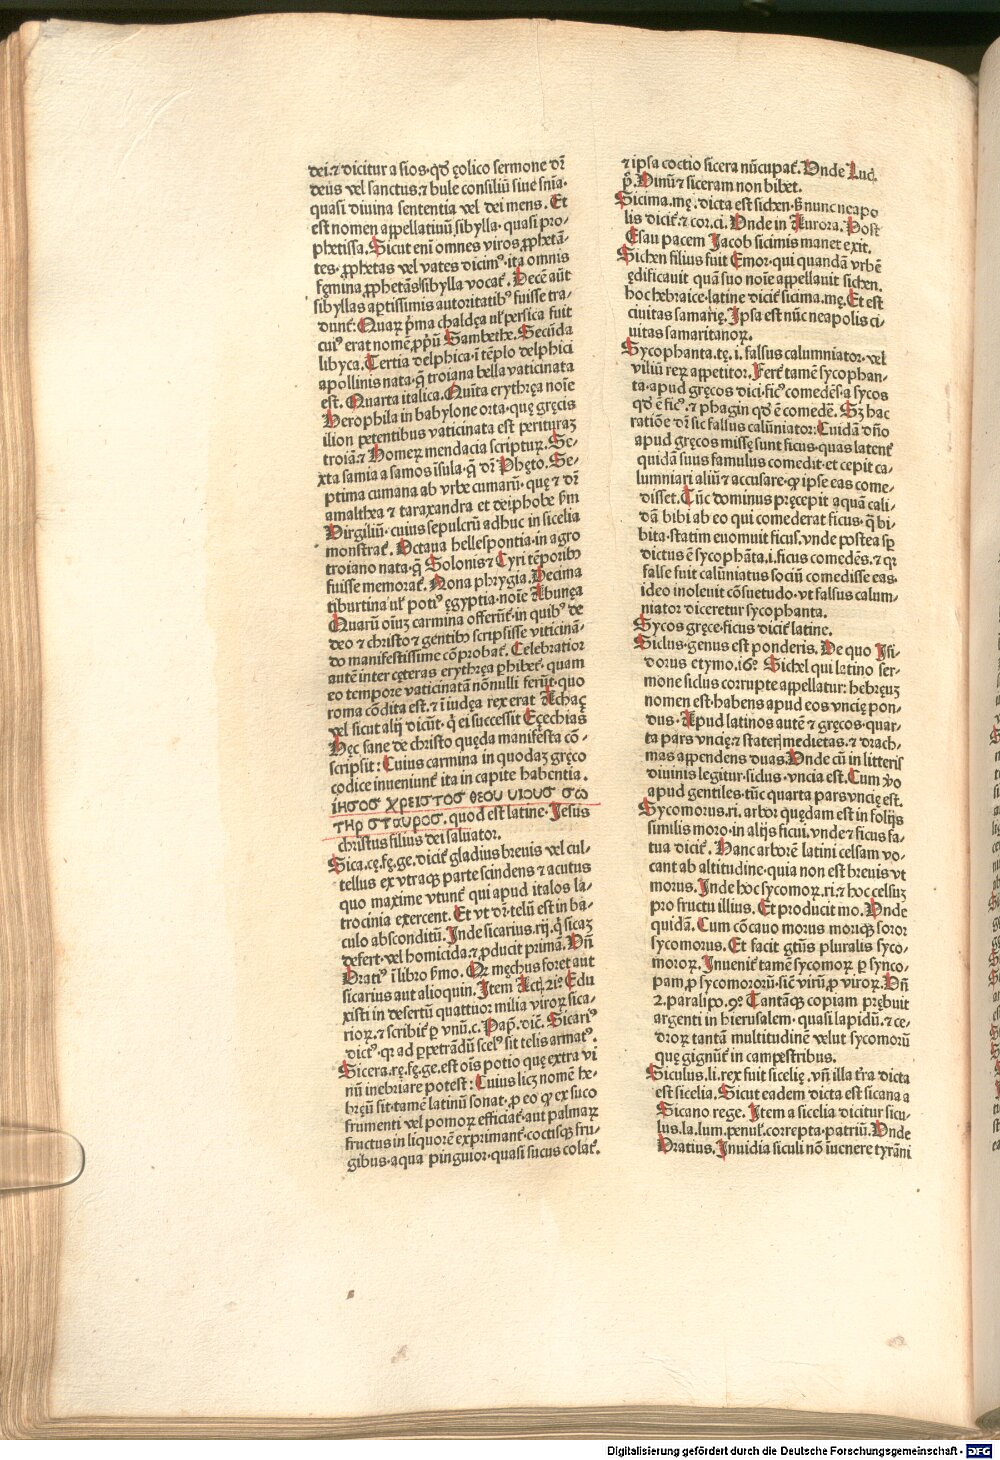 dei.⁊ dicitur a sios.qđ ęolico sermone dr̄
deus vel sanctus.⁊ bule consiliū siue sn̄ia.
quasi diuina sententia vel dei mens. Et
est nomen appellatiuū sibylla.quasi pro-
phetissa. Sicut eni omnes viros ꝓphetā-
tes.ꝓphetas vel vates dicimꝰ.ita omnis
fęmina ꝓphetās sibylla vocat̄. Decē aūt
sibyllas aptissimis autoritatibꝰ fuisse tra-
dunt̄: Quaꝝ p̄ma chaldęa ul̓ persica fuit
cuiꝰ erat nomē ꝓpriū Sambethe. Secūda
libyca. Tertia delphica.i tēplo delphici
apollinis nata.q̄ troiana bella vaticinata
est. Quarta italica. Quīta erythręa noīe
Herophila in babylone orta.quę gręcis
ilion petentibus vaticinata est perituraꝫ
troiā.⁊ Homeꝝ mendacia scripturꝝ. Se-
xta samia a samos īsula.q̄ dr̄ Phęto. Se-
ptima cumana ab vrbe cumarū.quę ⁊ dr̄
amalthea ⁊ taraxandra et deiphobe ẜm
Virgiliū.cuius sepulcrū adhuc in sicelia
monstrat̄. Octaua hellespontia.in agro
troiano nata.q̄ Solonis ⁊ Cyri tēporibꝰ
fuisse memorat̄. Nona phrygia. Decima
tiburtina ul̓ potiꝰ ęgyptia.noīe Abunęa
Quarū oīuꝫ carmina offerūt̄.in quibꝰ de
deo ⁊ christo ⁊ gentibꝰ scripsisse viticinā-
do manifestissime cōprobat̄. Celebratior
autē inter cęteras erythręa ꝑhibet̄.quam
eo tempore vaticinatā nōnulli ferūt.quo
roma cōdita est.⁊ i iudęa rex erat Achaç
vel sicut alij dicūt.q̄ ei successit Eçechias
Hęc sane de christo quęda manifesta cō-
scripsit: Cuius carmina in quodaꝫ gręco
codice inueniunt̄ ita in capite habentia.
ιησος χρειστος θεου υιους σω
τηρ σταυρος.quod est latine.Jesus
christus filius dei saluator.
Sica.cę.fę.ge.dicit̄ gladius breuis vel cul-
tellus ex vtraqꝫ parte scindens ⁊ acutus
quo maxime vtunt̄ qui apud italos la-
trocinia exercent. Et vt dr̄.telū est in ba-
culo absconditū. Inde sicarius.rij.q̄ sicaꝫ
defert.vel homicida.⁊ ꝓducit primā. Vn̄
Oratiꝰ i libro ẜmo. Qꝫ męchus foret aut
sicarius aut alioquin. Item Act̄.21ꝰ. Edu
xisti in desertū quattuor milia viroꝝ sica-
rioꝝ.⁊ scribit̄ ꝑ vnū.c. Pap̄.dic̄. Sicariꝰ
dictꝰ.qꝛ ad ꝑpetrādū scelꝰ sit telis armatꝰ.
Sicera.rę.fę.ge.est oīs potio quę extra vi
nū inebriare potest: Cuius licꝫ nomē he-
bręū sit.tamē latinū sonat.ꝓ eo ꝙ ex suco
frumenti vel pomoꝝ efficiat̄.aut palmaꝝ
fructus in liquorē exprimant̄.coctisqꝫ fru-
gibus.aqua pinguior.quasi sucus colat̄.
⁊ ipsa coctio sicera nūcupat̄. Vnde Luc̄.
p̄. Vinū ⁊ siceram non bibet.
Sicima.mę.dicta est sichen.ꝗ nunc neapo
lis dicit̄.⁊ cor.ci. Vnde in Aurora. Post
Esau pacem Jacob sicimis manet exit.
Sichen filius fuit Emor.qui quandā vrbē
ędificauit quā suo noīe appellauit sichen.
hoc hebraice.latine dicit̄ sicima.mę. Et est
ciuitas samarię. Ipsa est nūc neapolis ci-
uitas samaritanoꝝ.
Sycophanta.tę.i.falsus calumniator.vel
viliū reꝝ appetitor. Fert̄ tamē sycophan-
ta.apud gręcos dici.ficꝰ comedēs.a sycos
qđ ē ficꝰ.⁊ phagin qđ ē comedē. Sꝫ hac
ratiōe dr̄ sic fallus calūniator: Cuidā dn̄o
apud gręcos missę sunt ficus.quas latent̄
quidā suus famulus comedit.et cepit ca-
lumniari aliū ⁊ accusare.ꝙ ipse eas come-
disset. Tūc dominus pręcepit aquā cali-
dā bibi ab eo qui comederat ficus.q̄ bi-
bita.statim euomuit ficus.vnde postea sꝑ
dictus ē sycophāta.i.ficus comedēs.⁊ qꝛ
false fuit calūniatus sociū comedisse eas.
ideo inoleuit cōsuetudo.vt falsus calum-
niator diceretur sycophanta.
Sycos gręce.ficus dicit̄ latine.
Siclus.genus est ponderis. De quo Isi-
dorus etymo.16ꝰ. Sichel qui latino ser-
mone siclus corrupte appellatur: hebręuꝫ
nomen est.habens apud eos vncię pon-
dus. Apud latinos autē ⁊ gręcos.quar-
ta pars vncię.⁊ stateri medietas.⁊ drach-
mas appendens duas. Vnde cū in litteris
diuinis legitur.sidus.vncia est. Cum v̓o
apud gentiles.tūc quarta pars vncię est.
Sycomorus.ri.arbor quędam est in folijs
similis moro.in alijs ficui.vnde ⁊ ficus fa-
tua dicit̄. Hanc arborē latini celsam vo-
cant ab altitudine.quia non est breuis vt
morus. Inde hoc sycomoꝝ.ri.⁊ hoc celsuꝫ
pro fructu illius. Et producit mo. Vnde
quidā. Cum cōcauo morus moriqꝫ soror
sycomorus. Et facit gtūs pluralis syco-
moroꝝ. Inuenit̄ tamē sycomoꝝ ꝑ synco-
pam.ꝓ sycomororū.sic̄ virū.ꝓ viroꝝ. Vn̄
2.paralipo.9ꝰ. Tantāqꝫ copiam prębuit
argenti in hierusalem.quasi lapidū.⁊ ce-
droꝝ tantā multitudinē velut sycomorū
quę gignūt̄ in campestribus.
Siculus.li.rex fuit sicelię.vn̄ illa t̄ra dicta
est sicelia. Sicut eadem dicta est sicana a
Sicano rege. Item a sicelia dicitur sicu-
lus.la.lum.penul̓.correpta.patriū. Vnde
Oratius. Inuidia siculi nō īuenere tyrāni
Digitalisierung gefördert durch die Deutsche Forschungsgemeinschaft - DFG